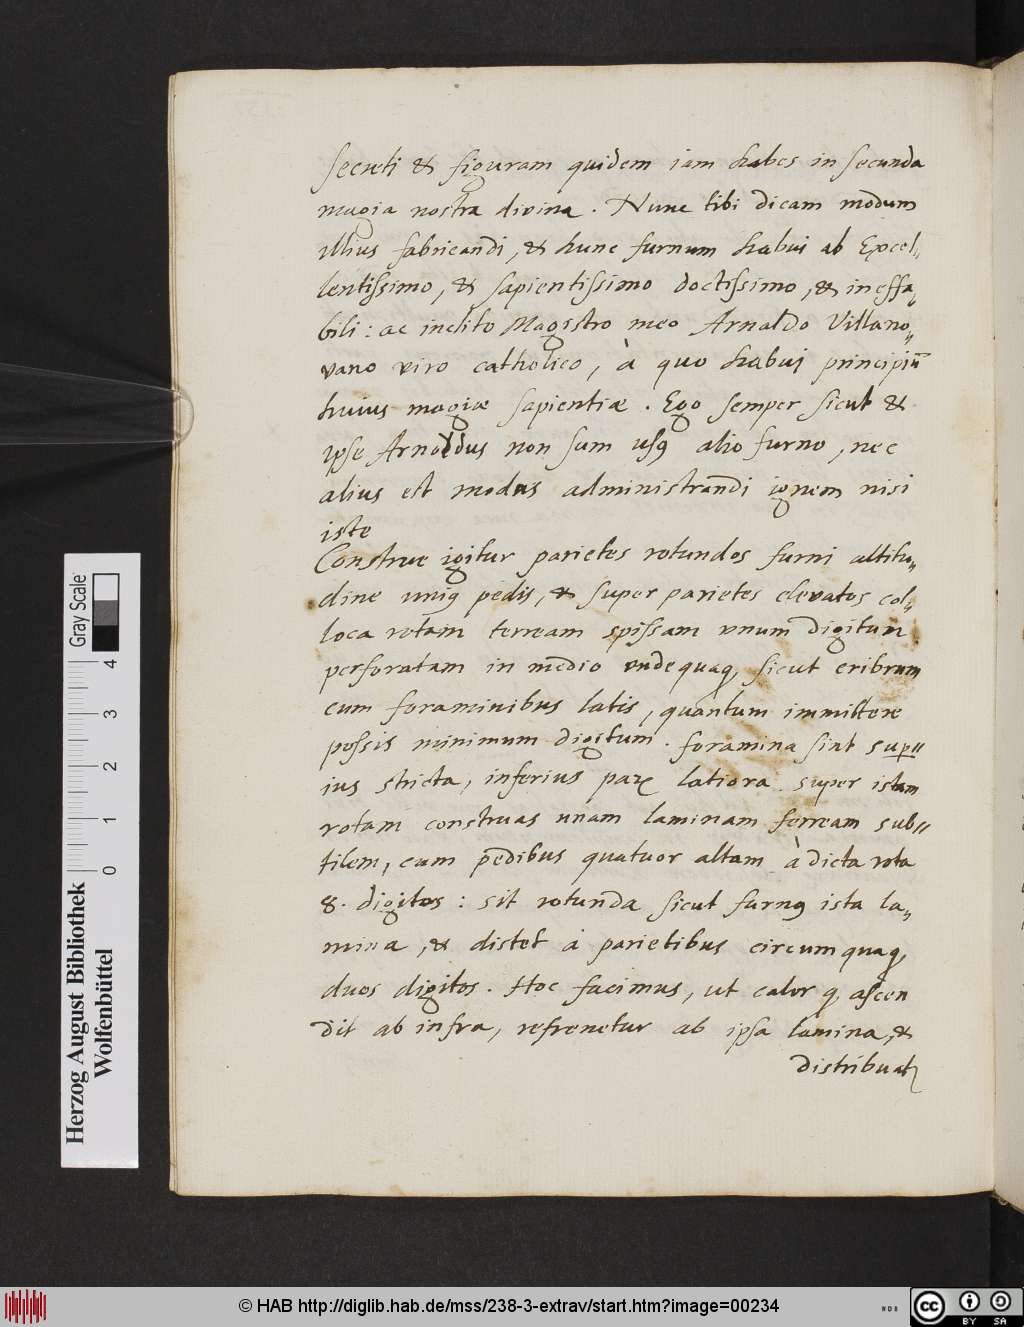 secreti & figuram quidem iam habes in secunda
magia nostra divina. Nunc tibi dicam modum
illius fabricandi, & hunc furnum habui ab Excel„
lentissimo, & sapientissimo doctissimo, & ineffa„
bili: ac inclito Magistro meo Arnaldo Villano„
vano viro catholico, à quo habui principiū
huius magiæ sapientiæ. Ego semper sicut &
ipse Arnoldus non sum usꝰ alio furno, nec
alius est modus administrandi ignem nisi
iste
Construe igitur parietes rotundos furni altitu„
dine uniꝰ pedis, & super parietes elevatos col„
loca rotam terream spissam unum digitum
perforatam in medio undequaq, sicut cribrum
cum foraminibus latis, quantum immittere
possis minimum digitum. foramina sint sup„
ius stricta, inferius latiora. super istam
rotam construas unam laminam ferream sub„
tilem, cum pedibus quatuor altam à dicta rota
8. digitos: sit rotunda sicut furnꝰ ista la„
mina, & distet à parietibus circumquaq,
duos digitos. Hoc facimus, ut calor q, ascen
dit ab infra, refrenetur ab ipsa lamina, &
distribuat
Herzog August Bibliothek
Wolfenbüttel
0 1 2 3 4
Gray Scale
© HAB http://diglib.hab.de/mss/238-3-extrav/start.htm?image=00234
cc BY SA